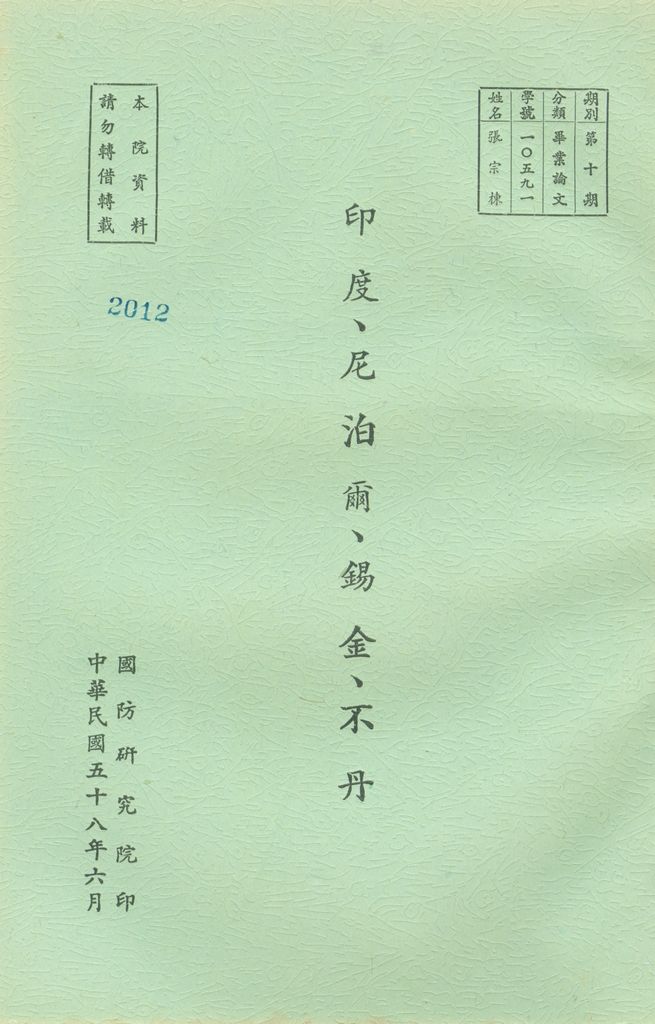 期別 第十期
分類 畢業論文
學號 一〇五九一
姓名 張宗棟
印度、尼泊爾、錫金、不丹
本院資料
請勿轉借轉載
2012
國防研究院印
中華民國五十八年六月